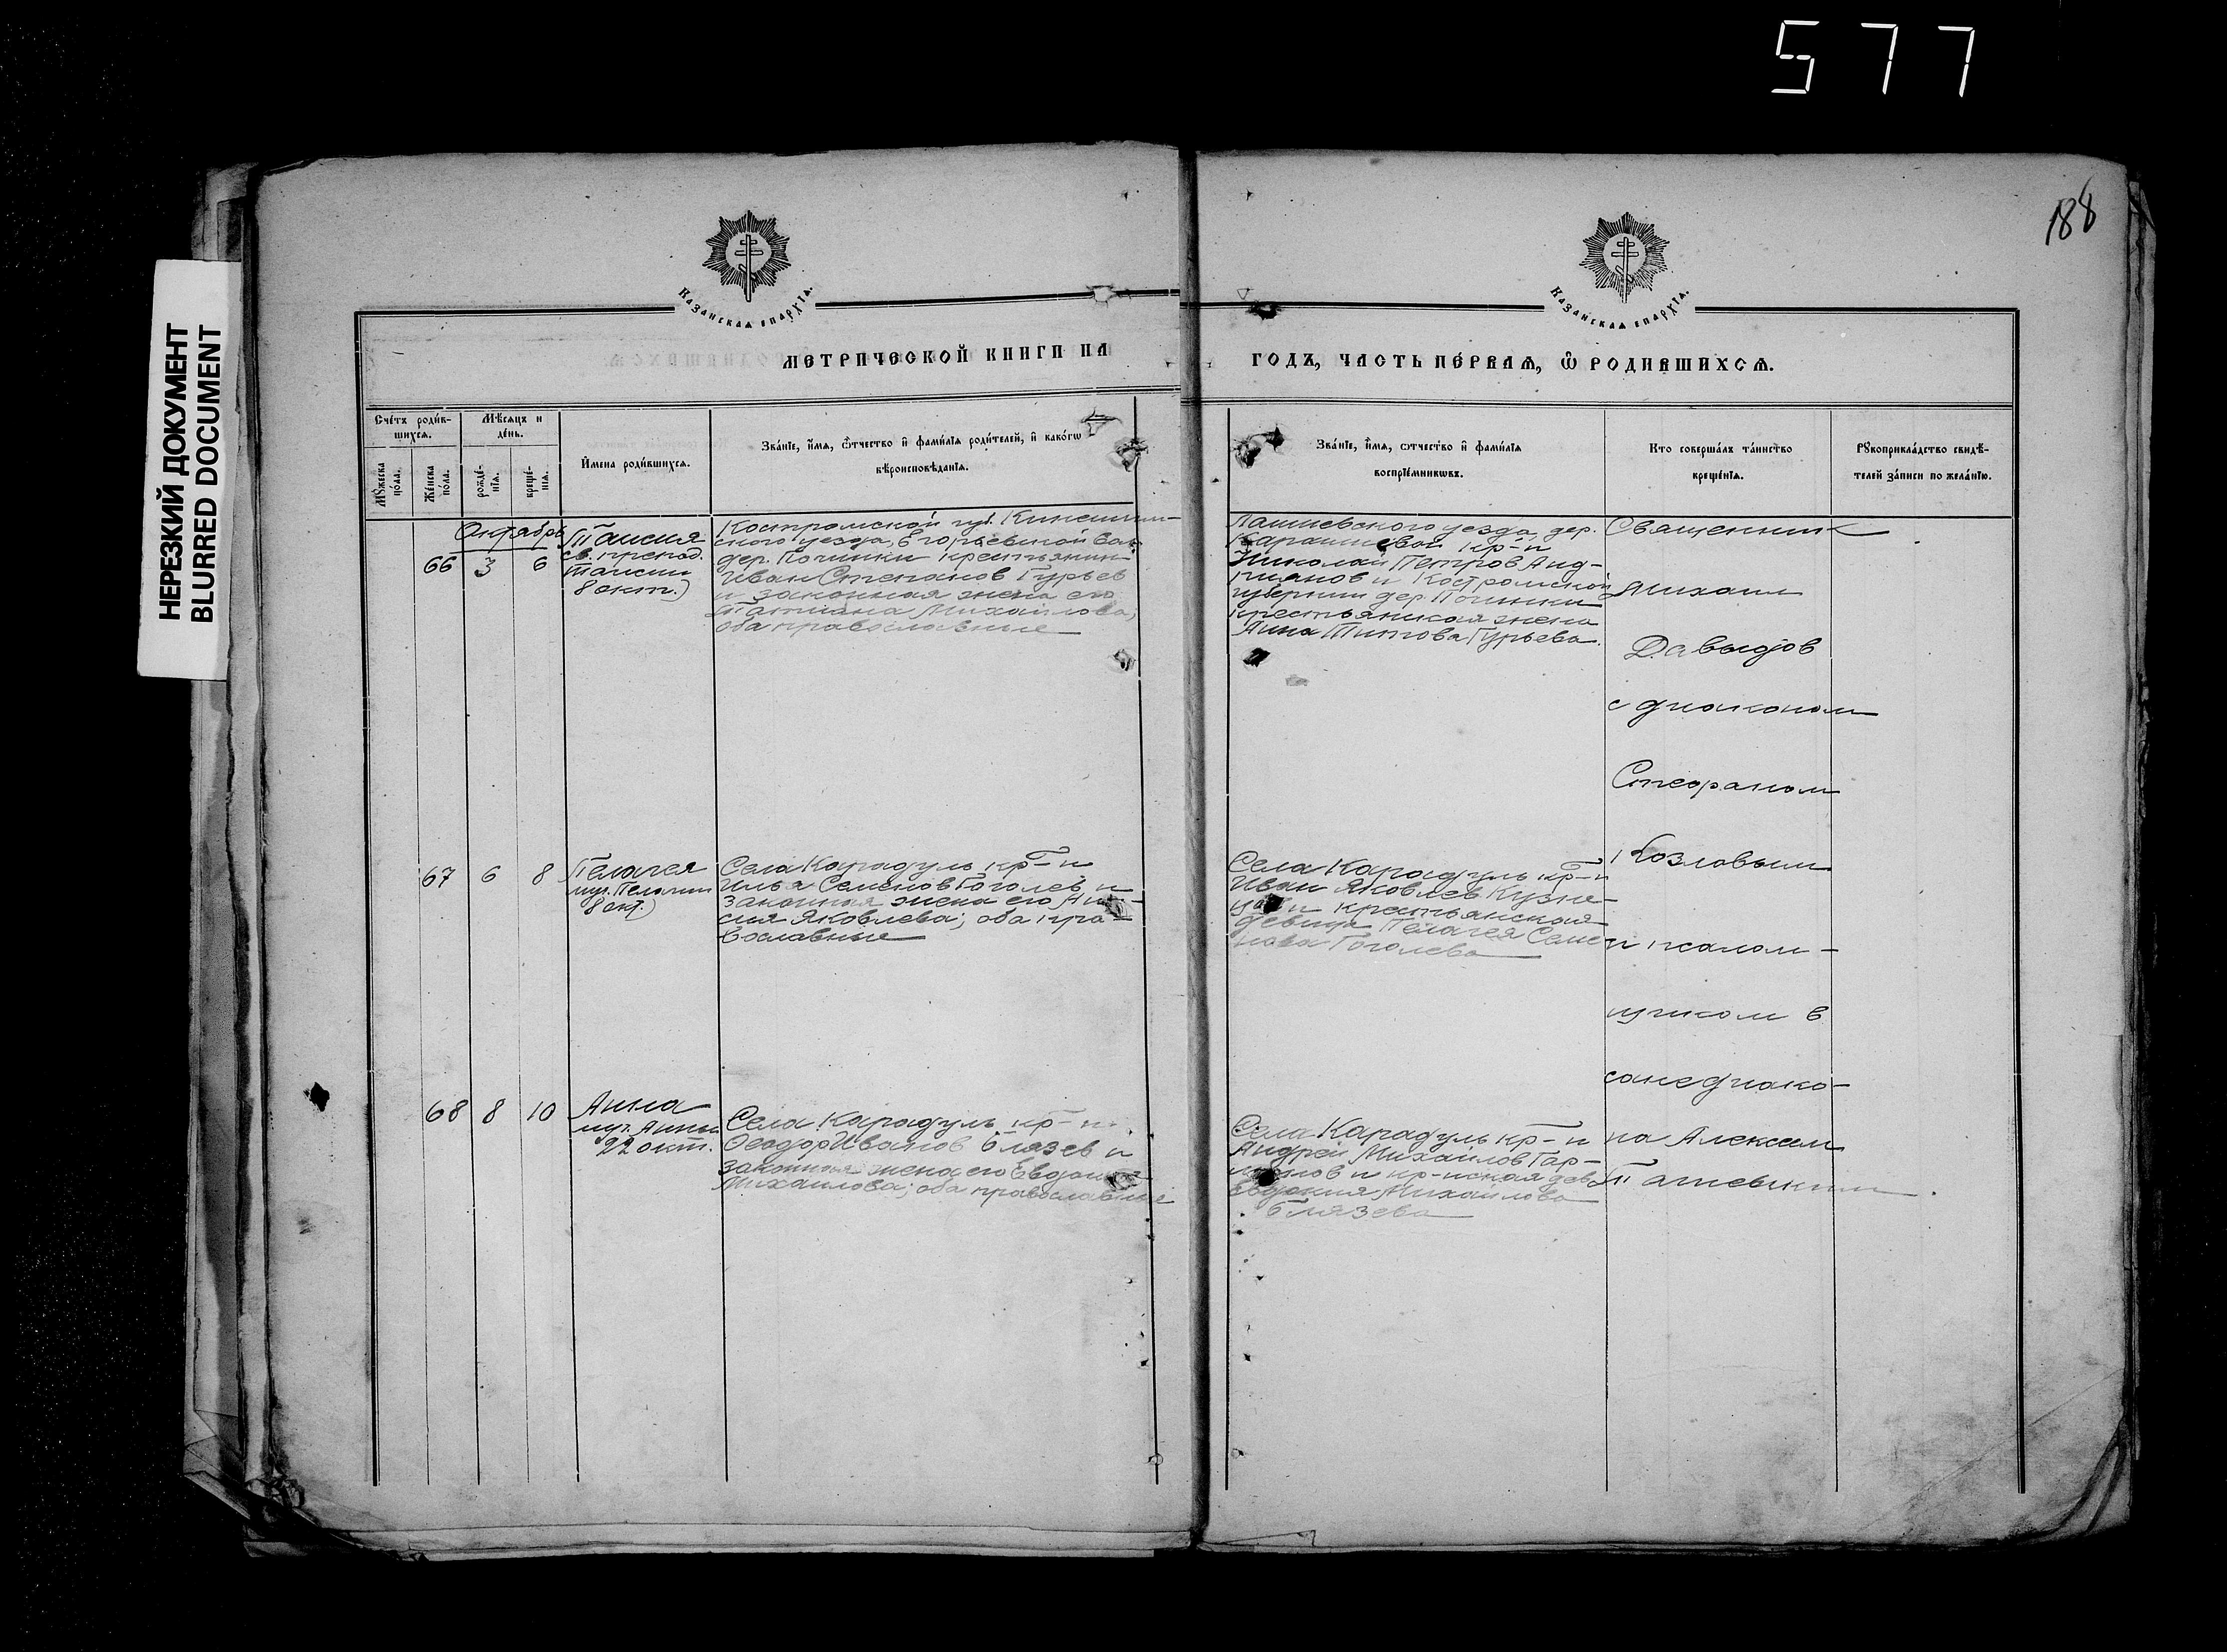 577
188
НЕРЕЗКИЙ ДОКУМЕНТ
BLURRED DOCUMENT
Казанская епархїѧ.
Казанская епархїѧ.
МЕТРИЧЕСКОЙ КНИГИ НА
ГОДЪ, ЧАСТЬ ПЕ́РВАѦ, Ѡ҆ РОДИВШИХСѦ.
Сче́тъ роди́в-
шихсѧ.
Мѣ́сяцъ и
де́нь.
Мꙋ́жеска
по́ла.
Же́нска
по́ла.
рожде́-
нїѧ.
креще́-
нїѧ.
И҆мена роди́вшихсѧ.
Зва́нїе, и҆́мѧ, ѻ҆́тчество и҆ фами́лїѧ роди́телей, и҆ како́гѡ
вѣроисповѣ́данїѧ.
Зва́нїе, и҆́мѧ, ѻ҆́тчество и҆ фами́лїѧ
воспрїе́мникѡвъ.
Кто соверша́лъ та́инство
креще́нїѧ.
Рꙋкоприкла́дство свидѣ́-
телей за́писи по жела́нїю.
Октябрь
66 3 6
Таисия
св. препод.
Таисии
8 окт.)
Костромской губ. Кинешем-
ского уезда, Егорьевской вол.
дер. Починки крестьянин
Иван Степанов Гурьев
и законная жена его
Татиана Михаилова;
оба православные
Лаишевского уезда, дер.
кр-н
Николай Петров Анд-
риянов и Костромской
губернии дер. Починки
крестьянская жена
Анна Титова Гурьева.
Священник
Михаил
Давыдов
с диаконом
Стефаном
Козловым
и псалом-
щиком в
сане диако-
на Алексеем
67 6 8
Пелагея
муч. Пелагии
8 окт.)
Села Карадуль кр-н
Илья Семенов Гоголев и
законная жена его
Яковлева; оба пра-
вославные
Села Карадуль кр-н
Иван Яковлев Кузне-
цов и крестьянская
девица Пелагея Семе-
нова Гоголева
68 8 10
Анна
муч. Анны
22 окт.
Села Карадуль кр-н
Феодор Иванов Блазев и
законная жена его Евдокия
Михаилова; оба православные
Села Карадуль кр-н
Андрей Михаилов Гар-
и кр-нская дев.
Евдокия Михаилова